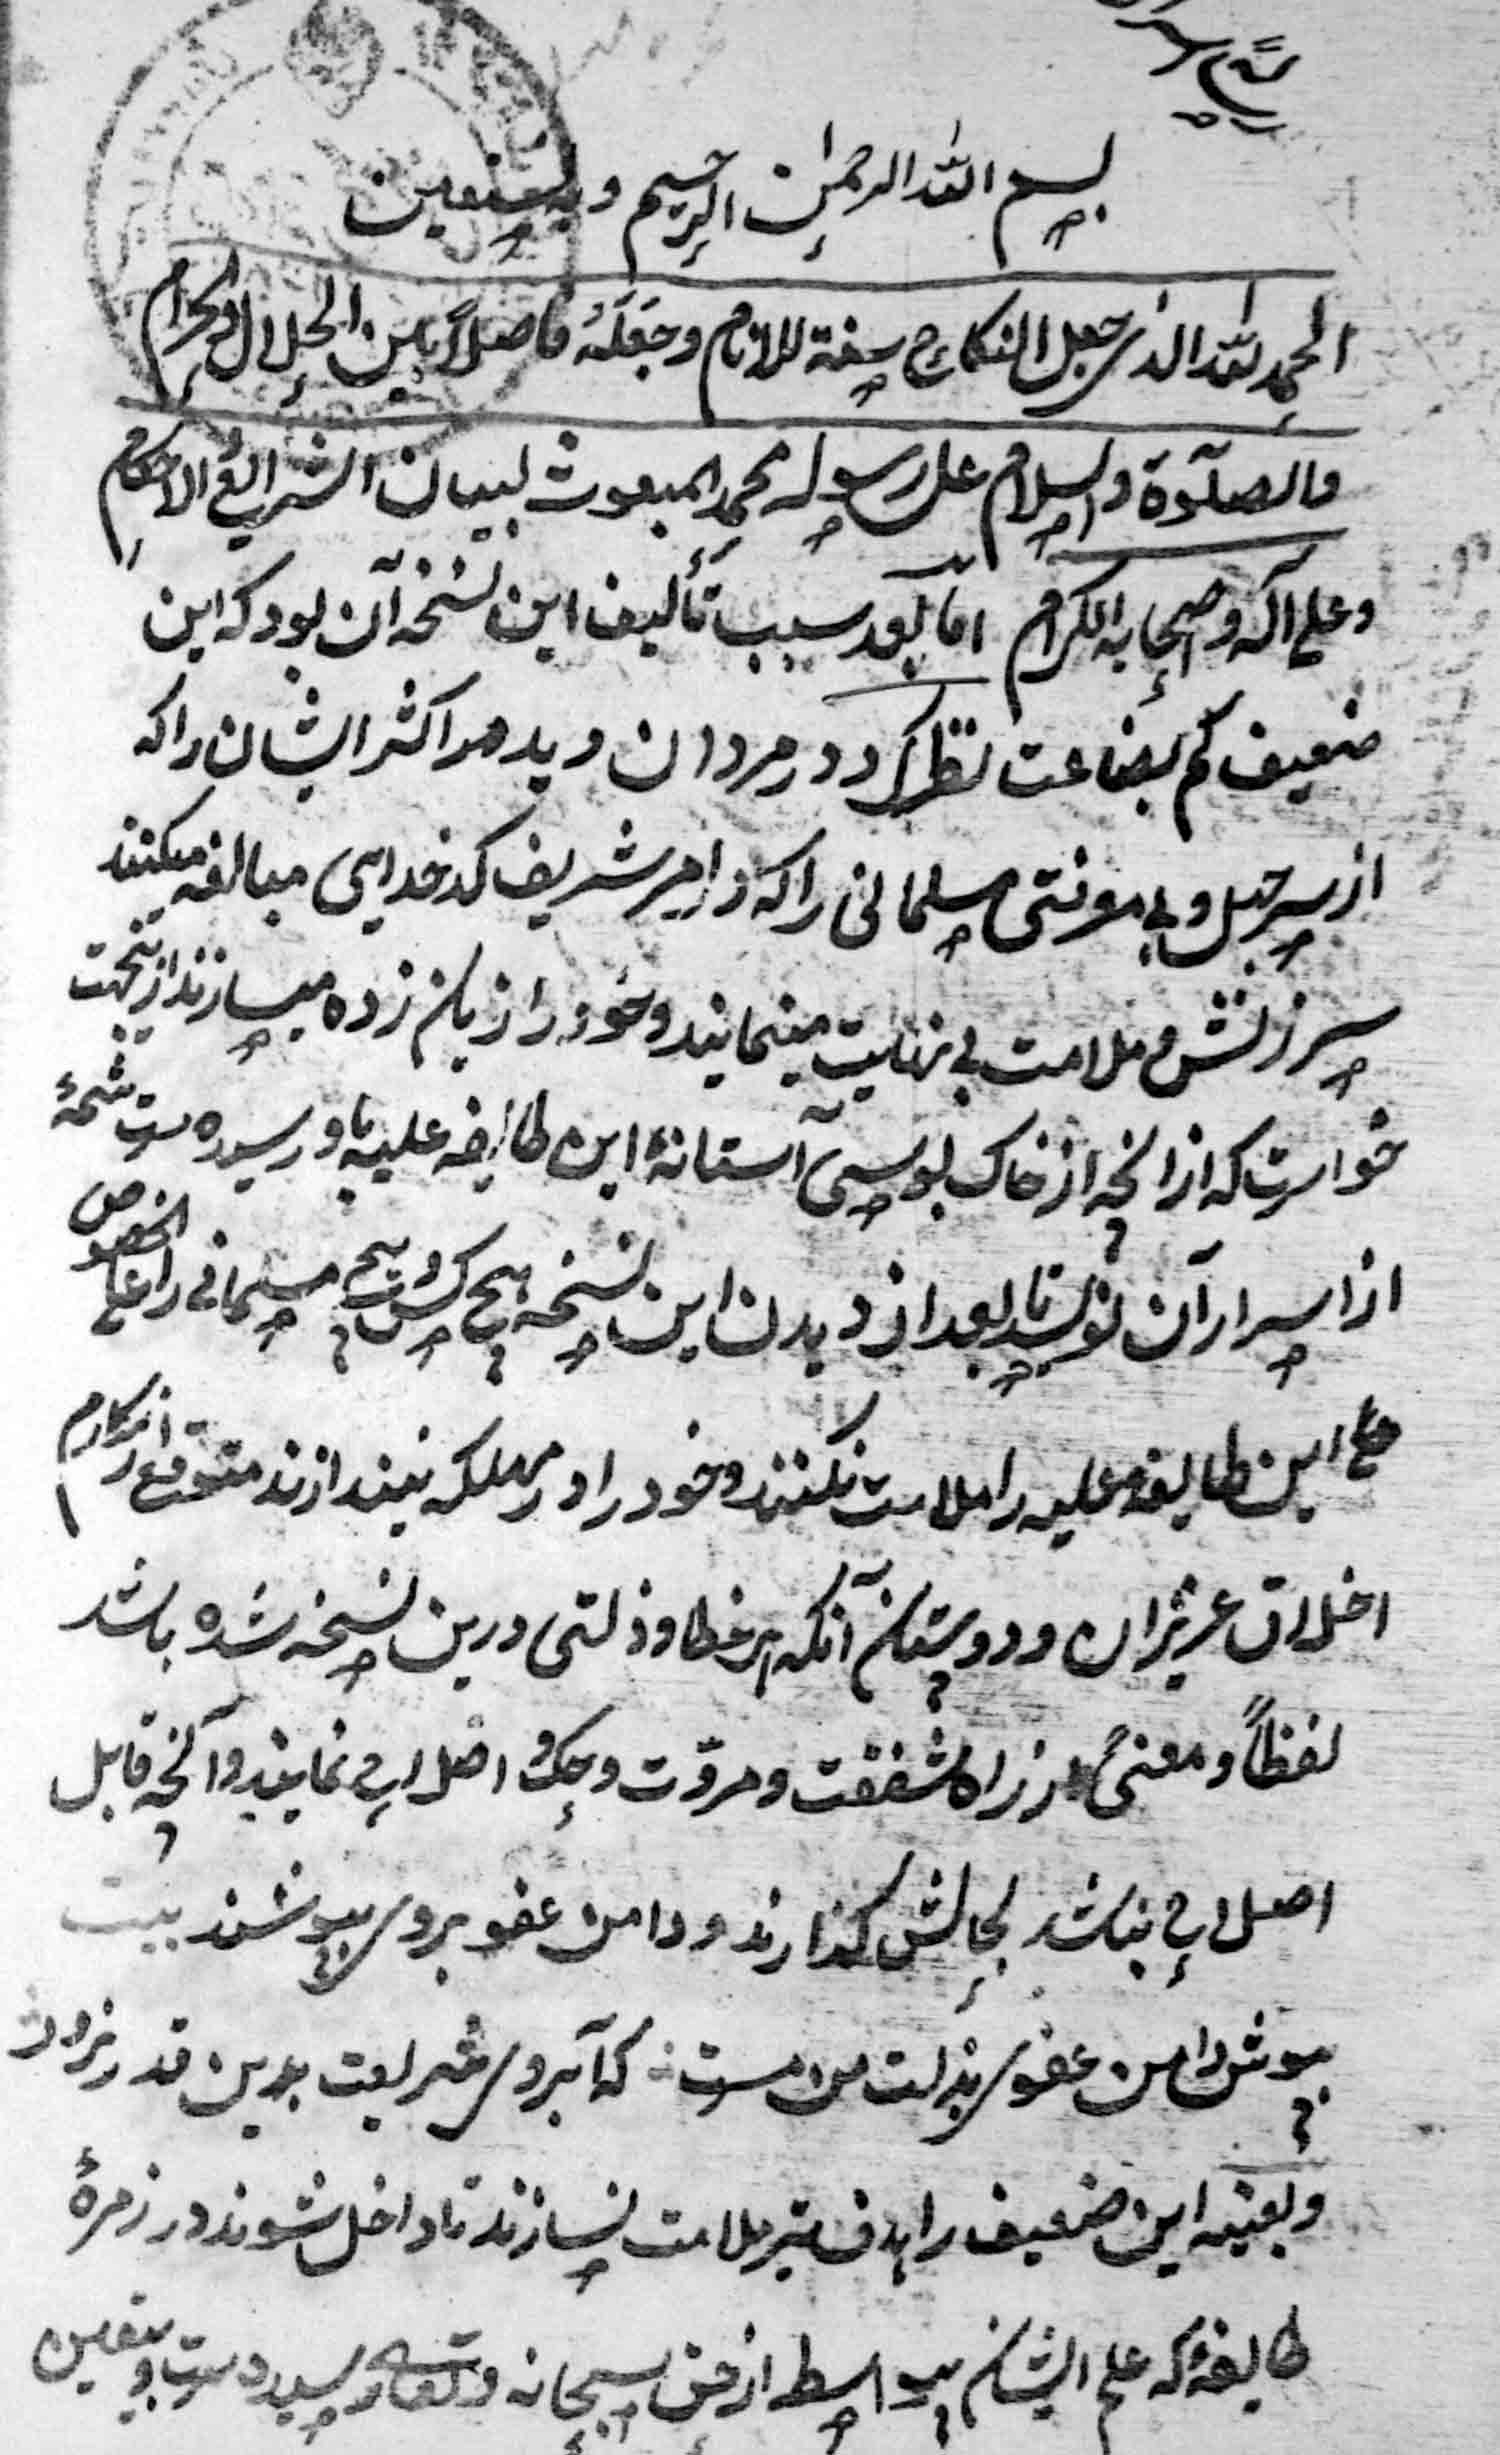 بسم الله الرحمن الرحیم وبه نستعین
الحمد لله الذی جعل النکاح سنة للانام وجعله فاصلاً بین الحلال والحرام
والصلوة والسلام علی رسوله محمد المبعوث لبیان الشرایع والاحکام
وعلی آله وصحابه الکرام امّا بعد سبب تألیف این نسخه آن بود که این
ضعیف کم بضاعت نظر کرد در مردان و دید مر اکثر ایشان را که
از سر جهل و بی معرفتی مسلمانی را که در امر شریف کدخدایی مبالغه میکنند
سرزنش و ملامت بی نهایت مینمایند و خود را زیان زده میسازند ازینجهت
خواست که از آنچه از خاک بوسی آستانۀ این طایفه علیه باو رسیده است شمۀ
از اسرار آن نویسد تا بعد از دیدن این نسخه هیچ کس هیچ مسلمانی را علی الخصوص
این طایفه علیه را ملامت نکنند و خود را در مهلکه نیندازند متوقع از مکارم
اخلاق عزیزان و دوستان آنکه هر خطا و ذلتی درین نسخه شده باشد
لفظاً و معنیً از راه شفقت و مروّت وحک اصلاح نمایند و آنچه قابل
اصلاح نباشد بحالش گذارند و دامن عفو بروی بپوشند بیت
بپوش دامن عفوی بذلت من مست که آبروی شریعت بدین قدر نرود
و بعینه این ضعیف را هدف تیر ملامت نسازند تا داخل شوند در زمرۀ
طایفۀ که علم ایشان بیواسطه از حق سبحانه وتعالی رسیده است و بیقین